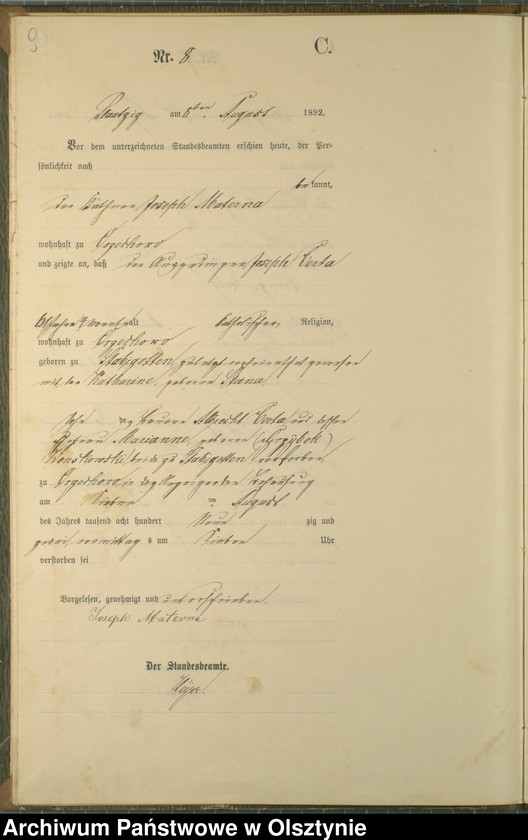 9
C.
Nr. 8.
am 8ten August 1892.
Vor dem unterzeichneten Standesbeamten erschien heute, der Per-
sönlichkeit nach
bekannt,
der Käthner Joseph Materna
wohnhaft zu
und zeigte an, daß der Joseph Certa
61 Jahre alt katholischer Religion,
wohnhaft zu
geboren zu Stabigotten, zuletzt verheirathet gewesen
mit der Katharine, geborene
Sohn des Bauern Albrecht Certa und dessen
Ehefrau Marianne, geborene
beide zu Stabigotten verstorben
zu in der Behausung
am Sieben ten August
des Jahres tausend acht hundert Neun zig und
zwei, vormittag s um Sieben Uhr
verstorben sei
Vorgelesen, genehmigt und unterschrieben.
Joseph Materna
Der Standesbeamte.
Archiwum Państwowe w Olsztynie